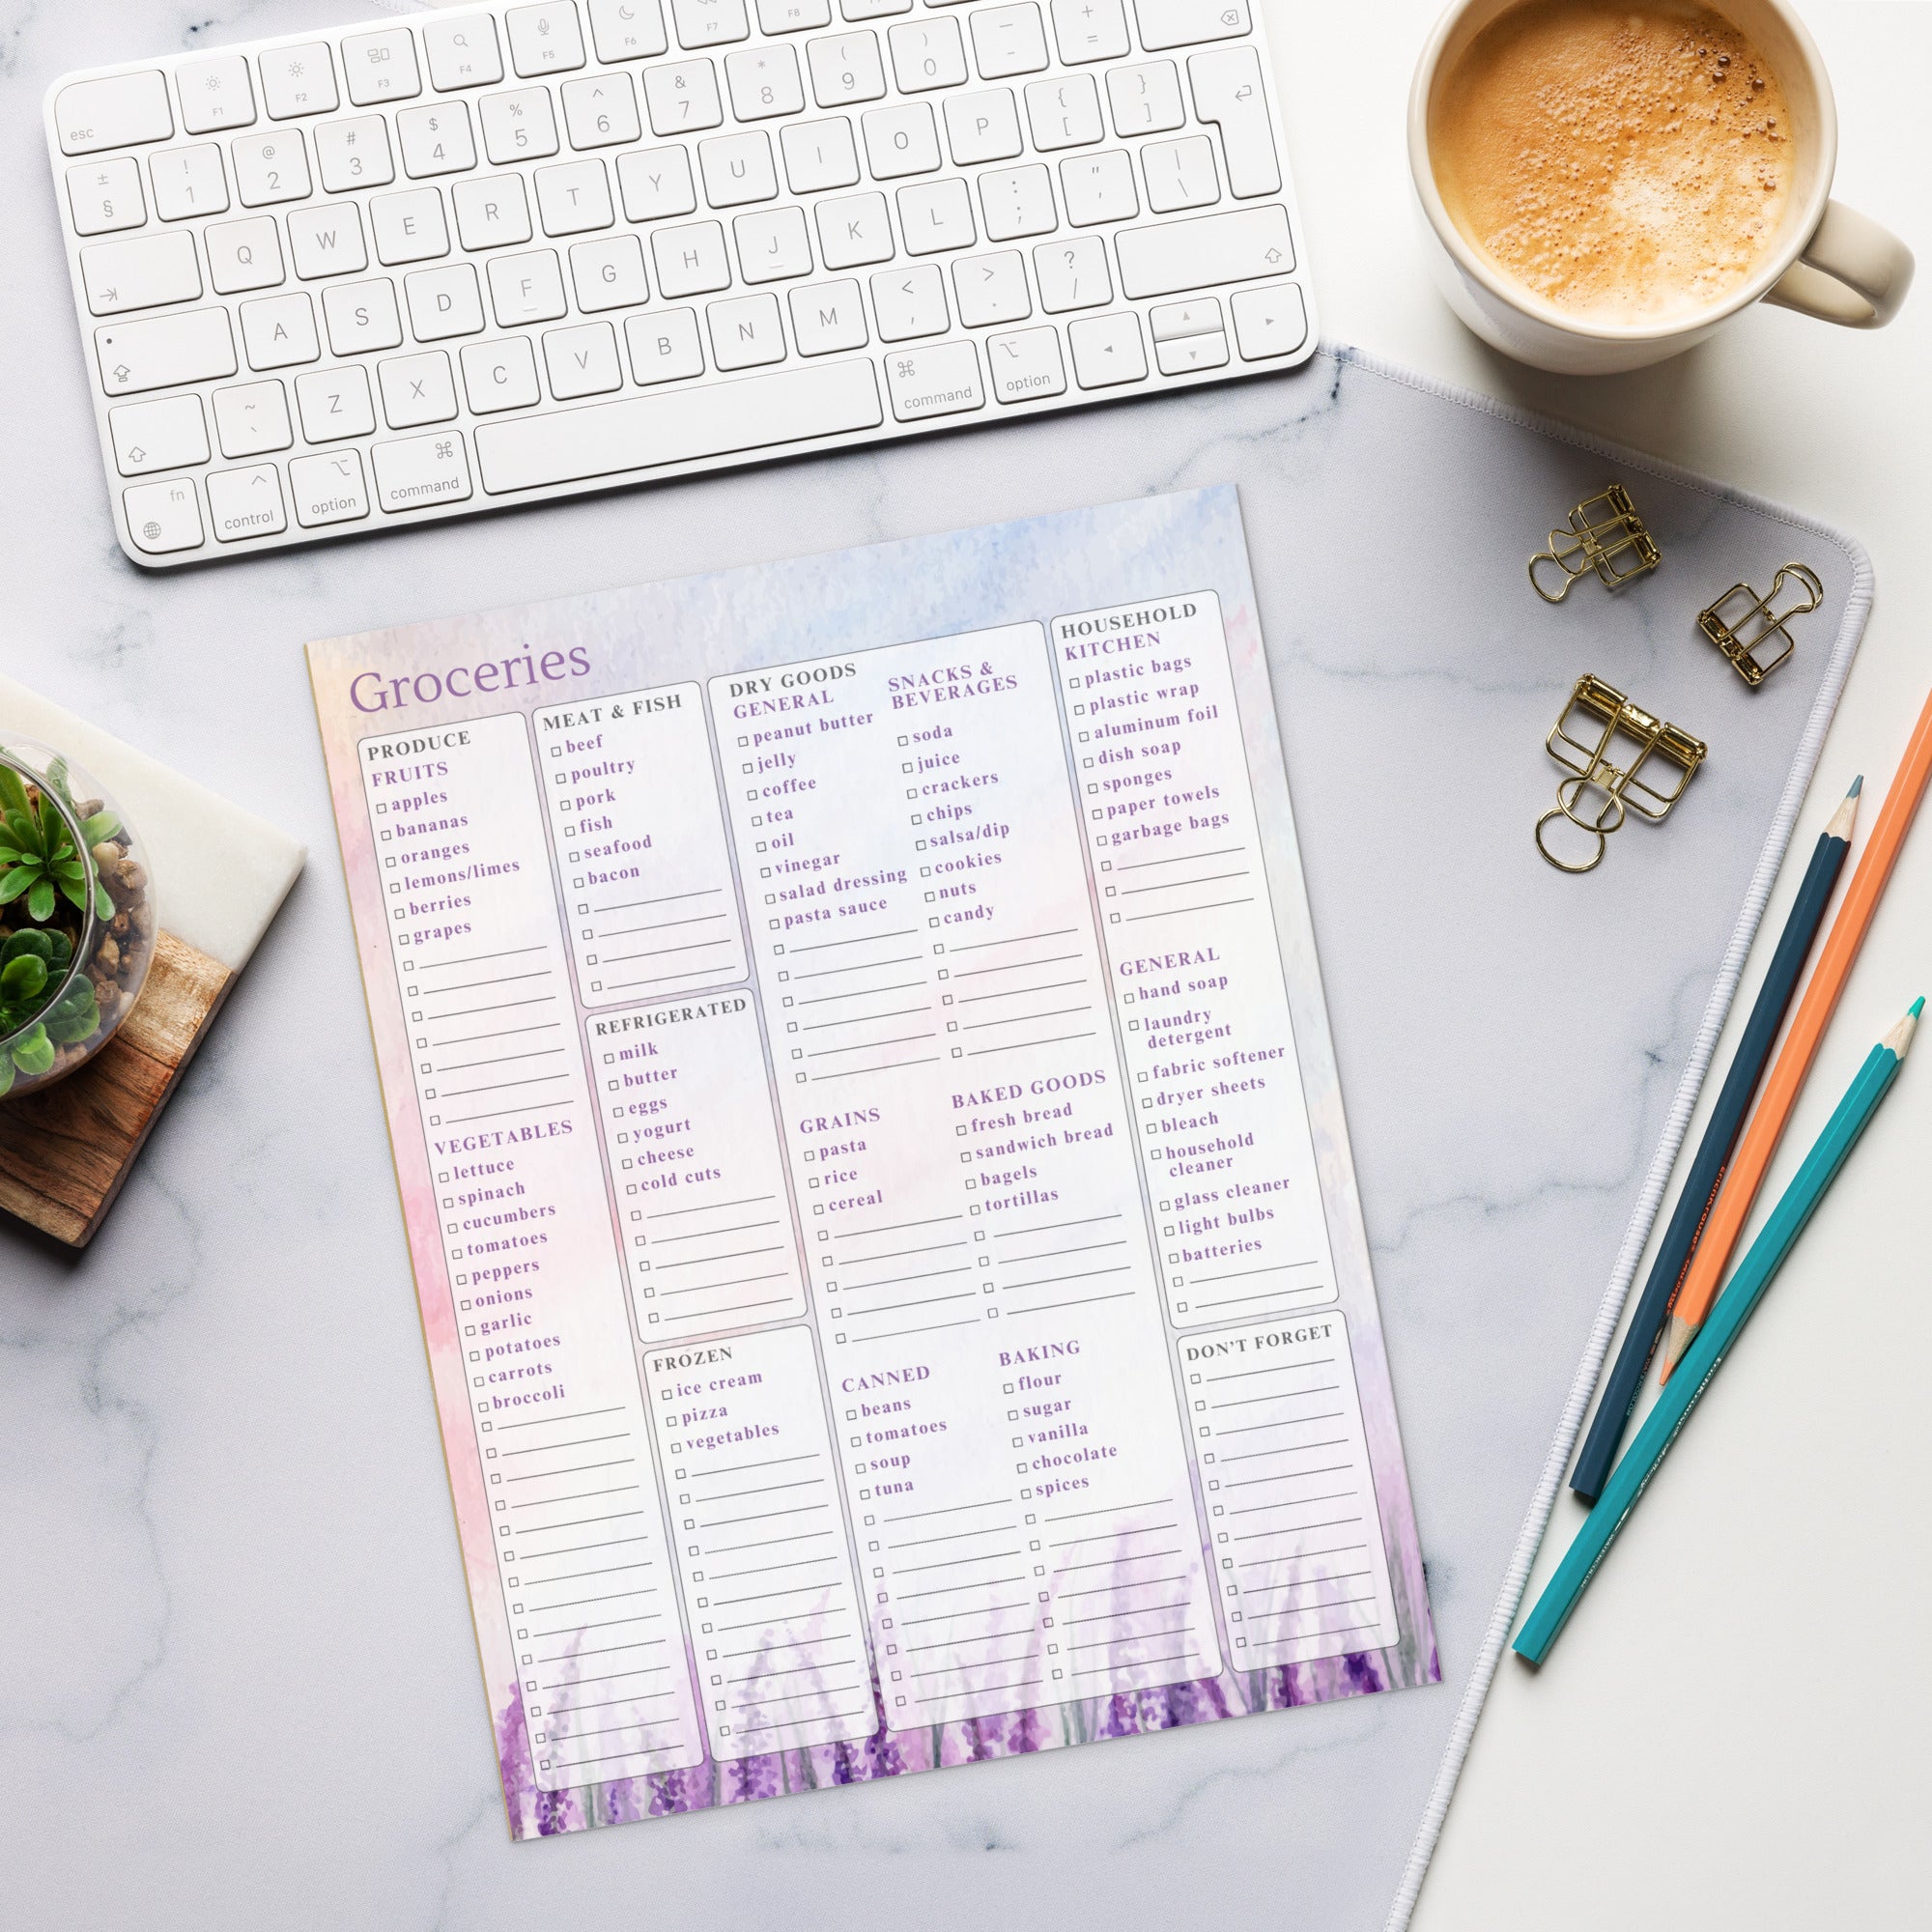 F1 F2 F3 F4 F5 F6 F7 F8
esc ! 1 @ 2 # 3 $ 4 % 5 ^ 6 & 7 * 8 ( 9 ) 0 _ - + =
± §
Q W E R T Y U I O P { [ } ]
A S D F G H J K L : ; " ' | \
~ ` Z X C V B N M < , > . ? /
fn control option command command option
Groceries
PRODUCE
FRUITS
apples
bananas
oranges
lemons/limes
berries
grapes
VEGETABLES
lettuce
spinach
cucumbers
tomatoes
peppers
onions
garlic
potatoes
carrots
broccoli
MEAT & FISH
beef
poultry
pork
fish
seafood
bacon
REFRIGERATED
milk
butter
eggs
yogurt
cheese
cold cuts
FROZEN
ice cream
pizza
vegetables
DRY GOODS
GENERAL
peanut butter
jelly
coffee
tea
oil
vinegar
salad dressing
pasta sauce
SNACKS &
BEVERAGES
soda
juice
crackers
chips
salsa/dip
cookies
nuts
candy
GRAINS
pasta
rice
cereal
BAKED GOODS
fresh bread
sandwich bread
bagels
tortillas
CANNED
beans
tomatoes
soup
tuna
BAKING
flour
sugar
vanilla
chocolate
spices
HOUSEHOLD
KITCHEN
plastic bags
plastic wrap
aluminum foil
dish soap
sponges
paper towels
garbage bags
GENERAL
hand soap
laundry
detergent
fabric softener
dryer sheets
bleach
household
cleaner
glass cleaner
light bulbs
batteries
DON'T FORGET